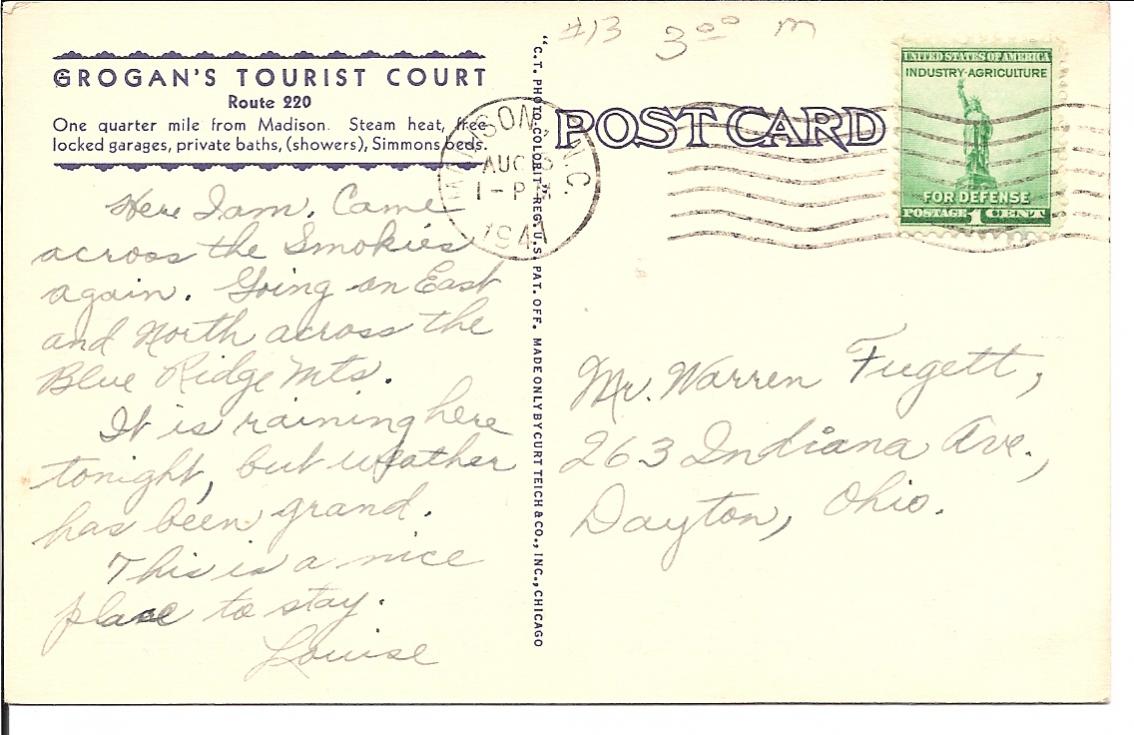 #13 3 00 m
GROGAN'S TOURIST COURT
Route 220
One quarter mile from Madison. Steam heat, free
locked garages, private baths, (showers), Simmons beds.
Here I am. Came
across the Smokies
again. Going on East
and North across the
Blue Ridge Mts.
It is raining here
tonight, but weather
has been grand.
This is a nice
place to stay.
Louise
"C.T. PHOTO-COLORIT" REG. U.S. PAT. OFF. MADE ONLY BY CURT TEICH & CO., INC., CHICAGO
MADISON, N.C.
AUG
1-PM
1941
POST CARD
UNITED STATES OF AMERICA
INDUSTRY·AGRICULTURE
FOR DEFENSE
POSTAGE 1 CENT
Mr. Warren Fugett,
263 Indiana Ave.,
Dayton, Ohio.